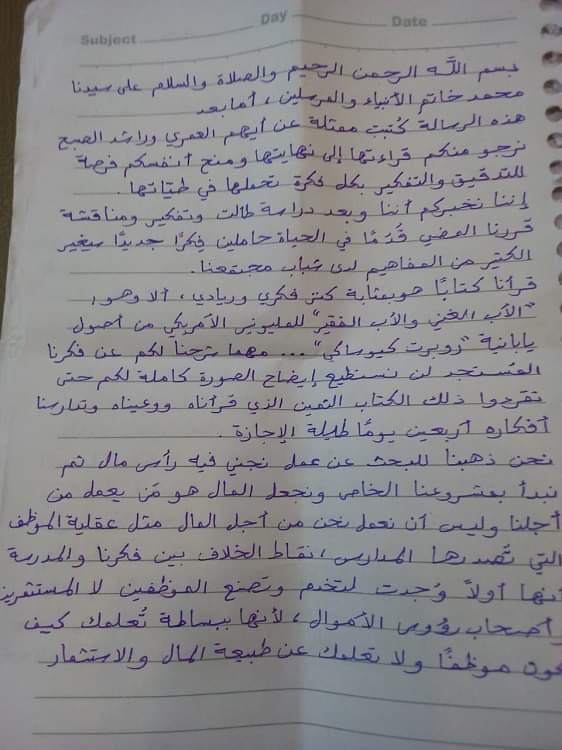 Day
Date
Subject
بسم الله الرحمن الرحيم والصلاة والسلام على سيدنا
محمد خاتم الأنبياء والمرسلين ، أما بعد
هذه الرسالة كُتبت ممثلة عن أيهم العمري وراشد الصبح
نرجو منكم قراءتها إلى نهايتها ومنح أنفسكم فرصة
للتدقيق والتفكير بكل فكرة تحملها في طيّاتها .
إننا نخبركم أننا وبعد دراسة طالت وتفكير ومناقشة
قررنا المضي قُدمًا في الحياة حاملين فِكرًا جديدًا سيغير
الكثير من المفاهيم لدى شباب مجتمعنا .
قرأنا كتابًا هو بمثابة كنز فكري وريادي ، ألا وهو
"الأب الغني والأب الفقير" للمليونير الأمريكي من أصول
يابانية "روبرت كيوساكي" ... مهما شرحنا لكم عن فكرنا
المُستجد لن نستطيع إيضاح الصورة كاملة لكم حتى
تقرءوا ذلك الكتاب الثمين الذي قرأناه ووعيناه وتدارسنا
أفكاره أربعين يومًا طيلة الإجازة .
نحن ذهبنا للبحث عن عمل نجني فيه رأس مال ثم
نبدأ بمشروعنا الخاص ونجعل المال هو مَن يعمل من
أجلنا وليس أن نعمل نحن من أجل المال مثل عقلية الموظف
التي تُصدرها المدارس ، نقاط الخلاف بين فكرنا والمدرسة
أنها أولاً وُجدت لتخدم وتصنع الموظفين لا المستثمرين
وأصحاب رؤوس الأموال ، لأنها ببساطة تُعلمك كيف
موظفًا ولا تعلمك عن طبيعة المال والاستثمار